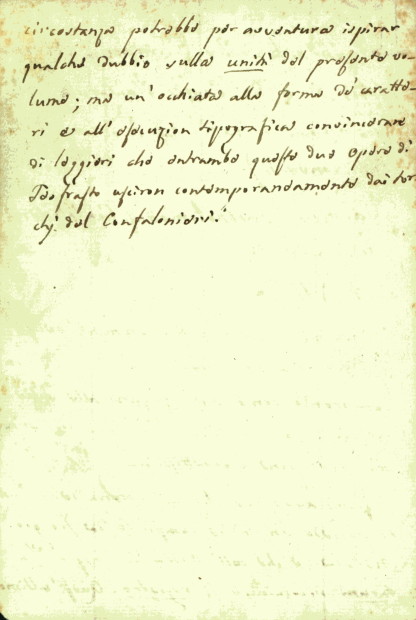 circostanza potrebbe per avventura ispirar
qualche dubbio sulla unità del presente vo-
lume; ma un' occhiata alla forma de' caratte-
ri e all' esecuzion tipografica convinceranno
di leggieri che entrambe queste due opere di
Teofrasto usciron contemporaneamente dai tor-
chj del Confalonieri."